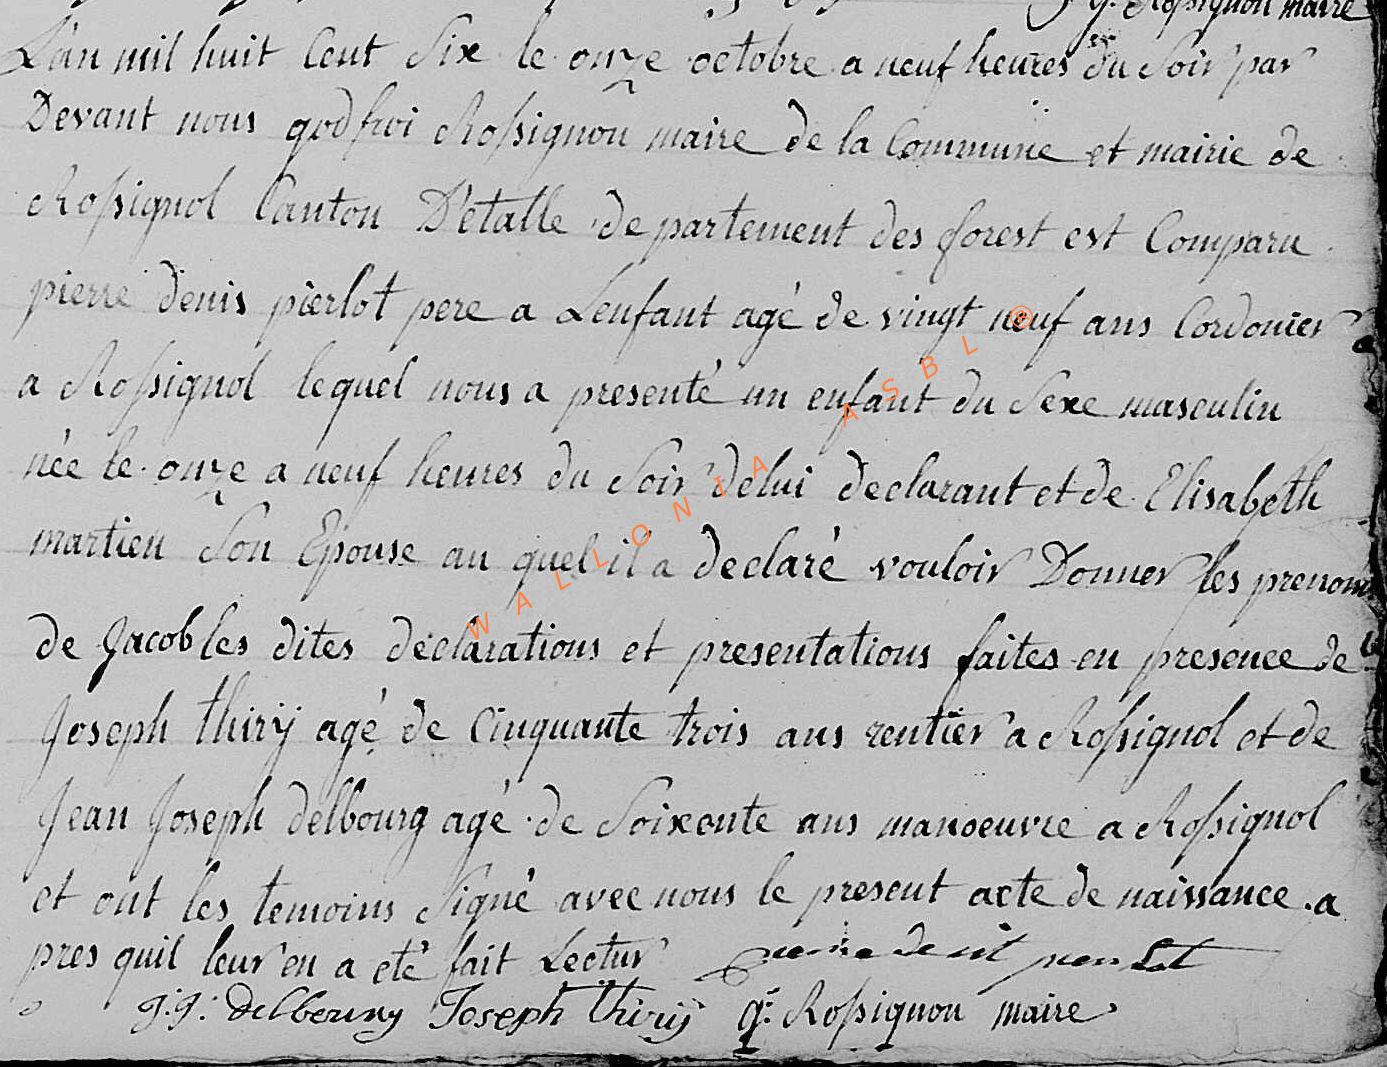 g. Rossignon maire
L'an mil huit Cent Six le onze octobre a neuf heures du Soir par
Devant nous godfroi Rossignon maire de la Commune et mairie de
Rossignol Canton D'etalle departement des forest est Comparu
pierre denis pierlot pere a Lenfant agé de vingt neuf ans Cordonier
a Rossignol lequel nous a presenté un enfant du Sexe masculin
née le onze a neuf heures du Soir delui declarant et de Elisabeth
martien Son Epouse au quel il a declaré vouloir Donner les prenoms
de Jacob les dites declarations et presentations faites en presence de
Joseph thirÿ agé de Cinquante trois ans rentier a Rossignol et de
Jean Joseph delbourg agé de Soixente ans manoeuvre a Rossignol
et ont les temoins Signé avec nous le present acte de naissance a
pres quil leur en a eté fait Lectur
J.J. delbourg Joseph thirÿ g. Rossignon maire
WALLONIA ASBL ®